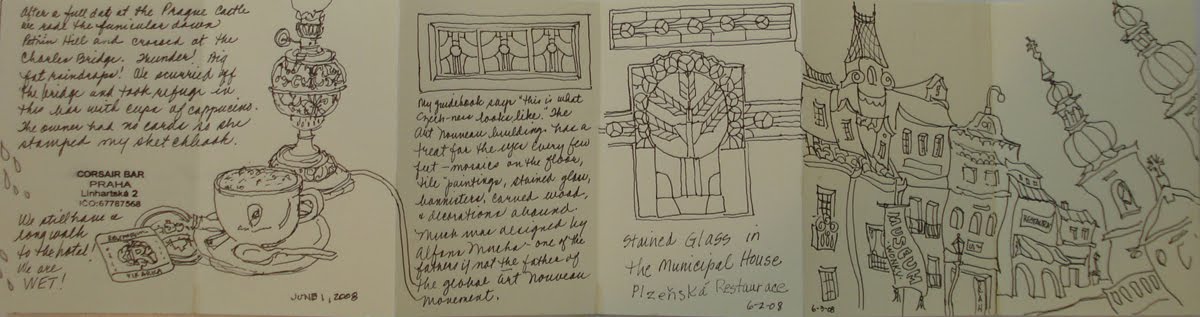 After a full day at the Prague Castle
we rode the funicular down
Petrin Hill and crossed at the
Charles Bridge. Thunder! Big
fat raindrops! We scurried off
the bridge and took refuge in
this bar with cups of cappucino.
The owner had no cards so she
stamped my sketchbook.
CORSAIR BAR
PRAHA
Linhartská 2
IČO:67787568
We still have a
long walk
to the hotel!
We are
WET!
JUNE 1, 2008
My guidebook says "this is what
Czech-ness looks like." The
Art Nouveau building has a
treat for the eyes every few
feet - mosaics on the floor,
tile "paintings", stained glass,
bannisters, carved wood,
& decorations abound.
Much was designed by
Alfons Mucha - one of the
fathers if not the father of
the global Art Nouveau
movement.
Stained Glass in
the Municipal House
Plzeňská Restaurace
6-2-08
MUSEUM
6-3-08